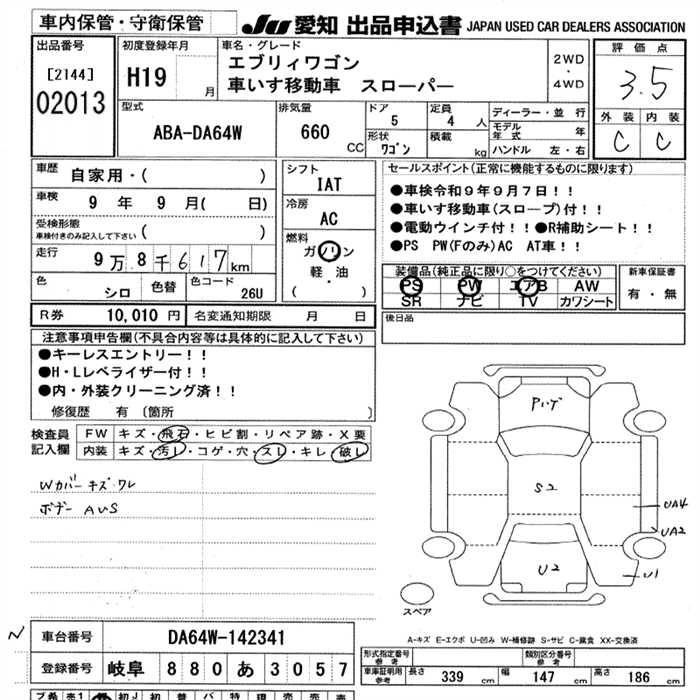 車内保管・守衛保管
JU 愛知 出品申込書 JAPAN USED CAR DEALERS ASSOCIATION
出品番号
[2144]
02013
初度登録年月
H19 月
車名・グレード
エブリィワゴン
車いす移動車 スローパー
2WD
・
4WD
評価点
3.5
外装 内装
C C
型式
ABA-DA64W
排気量
660 CC
ドア
5
定員
4 人
形状
ワゴン
積載
kg
ディーラー・並行
モデル年式 年
ハンドル 左・右
車歴
自家用・( )
車検
9 年 9 月( 日)
受検形態
車検付きのみ記入して下さい ( )
走行
9 万 8 千 6 1 7 km
色
シロ
色替
色コード
26U
シフト
IAT
冷房
AC
燃料
ガソリン
・
軽・油
( )
セールスポイント(正常に機能するものに限ります)
●車検令和9年9月7日!!
●車いす移動車(スロープ)付!!
●電動ウインチ付!!●R補助シート!!
●PS PW(Fのみ)AC AT車!!
装備品(純正品に限り○をつけてください)
PS PW エアB AW
SR ナビ TV カワシート
新車保証書
有・無
R券 10,010 円 名変通知期限 月 日
後日品
注意事項申告欄(不具合内容等は具体的に記入して下さい)
●キーレスエントリー!!
●H・Lレベライザー付!!
●内・外装クリーニング済!!
修復歴 有 [箇所 ]
検査員記入欄
FW キズ・飛石・ヒビ割・リペア跡・X要
内装 キズ・汚し・コゲ・穴・スレ・キレ・破し
Wカバー キズ・ワレ
ボデー AUS
Pいげ
S2
U2
UA4
UA2
U1
スペア
A-キズ E-エクボ U-凹み W-補修跡 S-サビ C-腐食 XX-交換済
車台番号 DA64W-142341
登録番号 岐阜 880 あ 3057
形式指定番号 参考
類別区分番号 参考
車庫証明用 参考 長さ 339 幅 147 高さ 186